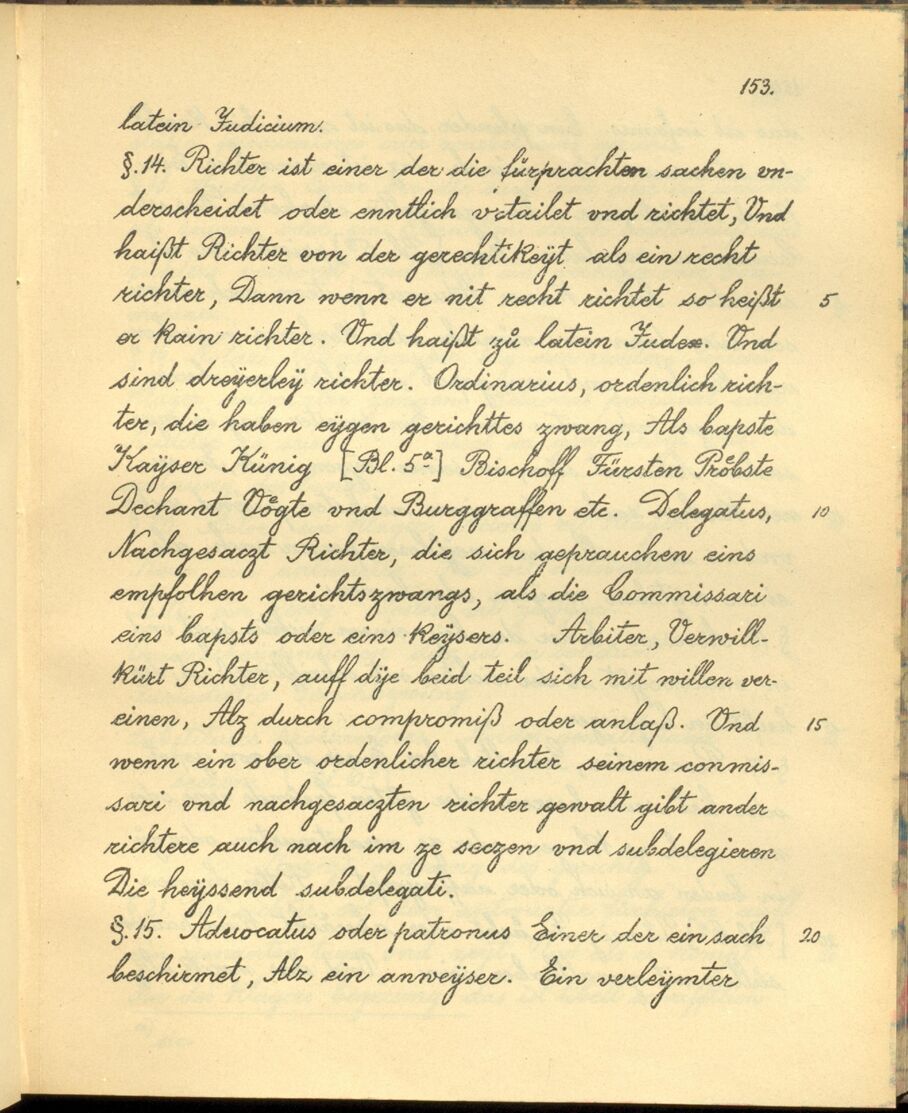 153.
latein Judicium.
§.14. Richter ist einer der die fürprachten sachen vn-
derscheidet oder enntlich vɔtailet vnd richtet, Vnd
haißt Richter von der gerechtikeyt als ein recht
richter, Dann wenn er nit recht richtet so heißt 5
er kain richter. Vnd haißt zů latein Judex. Vnd
sind dreÿerleÿ richter. Ordinarius, ordenlich rich-
ter, die haben eÿgen gerichttes zwang, Als bapste
Kaÿser Künig [Bl. 5ª] Bischoff Fürsten Prȯbste
Dechant Voͤgte vnd Burggraffen etc. Delegatus, 10
Nachgesaczt Richter, die sich geprauchen eins
empfolhen gerichtszwangs, als die Commissari
eins bapsts oder eins keÿsers. Arbiter, Verwill-
kürt Richter, auff dÿe beid teil sich mit willen ver-
einen, Alz durch compromiß oder anlaß. Vnd 15
wenn ein ober ordenlicher richter seinem conmis-
sari vnd nachgesaczten richter gewalt gibt ander
richtere auch nach im ze seczen vnd subdelegieren
Die heÿssend subdelegati.
§.15. Aduocatus oder patronus Einer der ein sach 20
beschirmet, Alz ein anweÿser. Ein verleÿmter